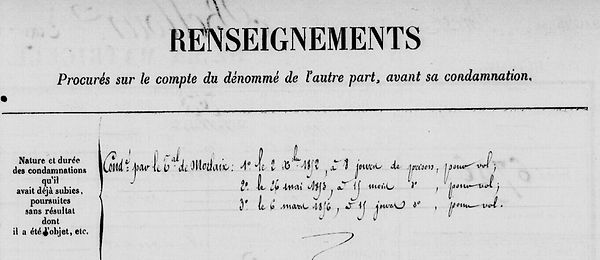 RENSEIGNEMENTS
Procurés sur le compte du dénommé de l'autre part, avant sa condamnation.
Nature et durée
des condamnations
qu'il
avait déjà subies,
poursuites
sans résultat
dont
il a été l'objet, etc.
Cond.é par le T.al de Morlaix : 1º le 2 Xbre 1872, à 8 jours de prison, pour vol ;
2º le 26 mai 1873, à 15 mois dº, pour vol ;
3º le 6 mars 1876, à 15 jours dº, pour vol.